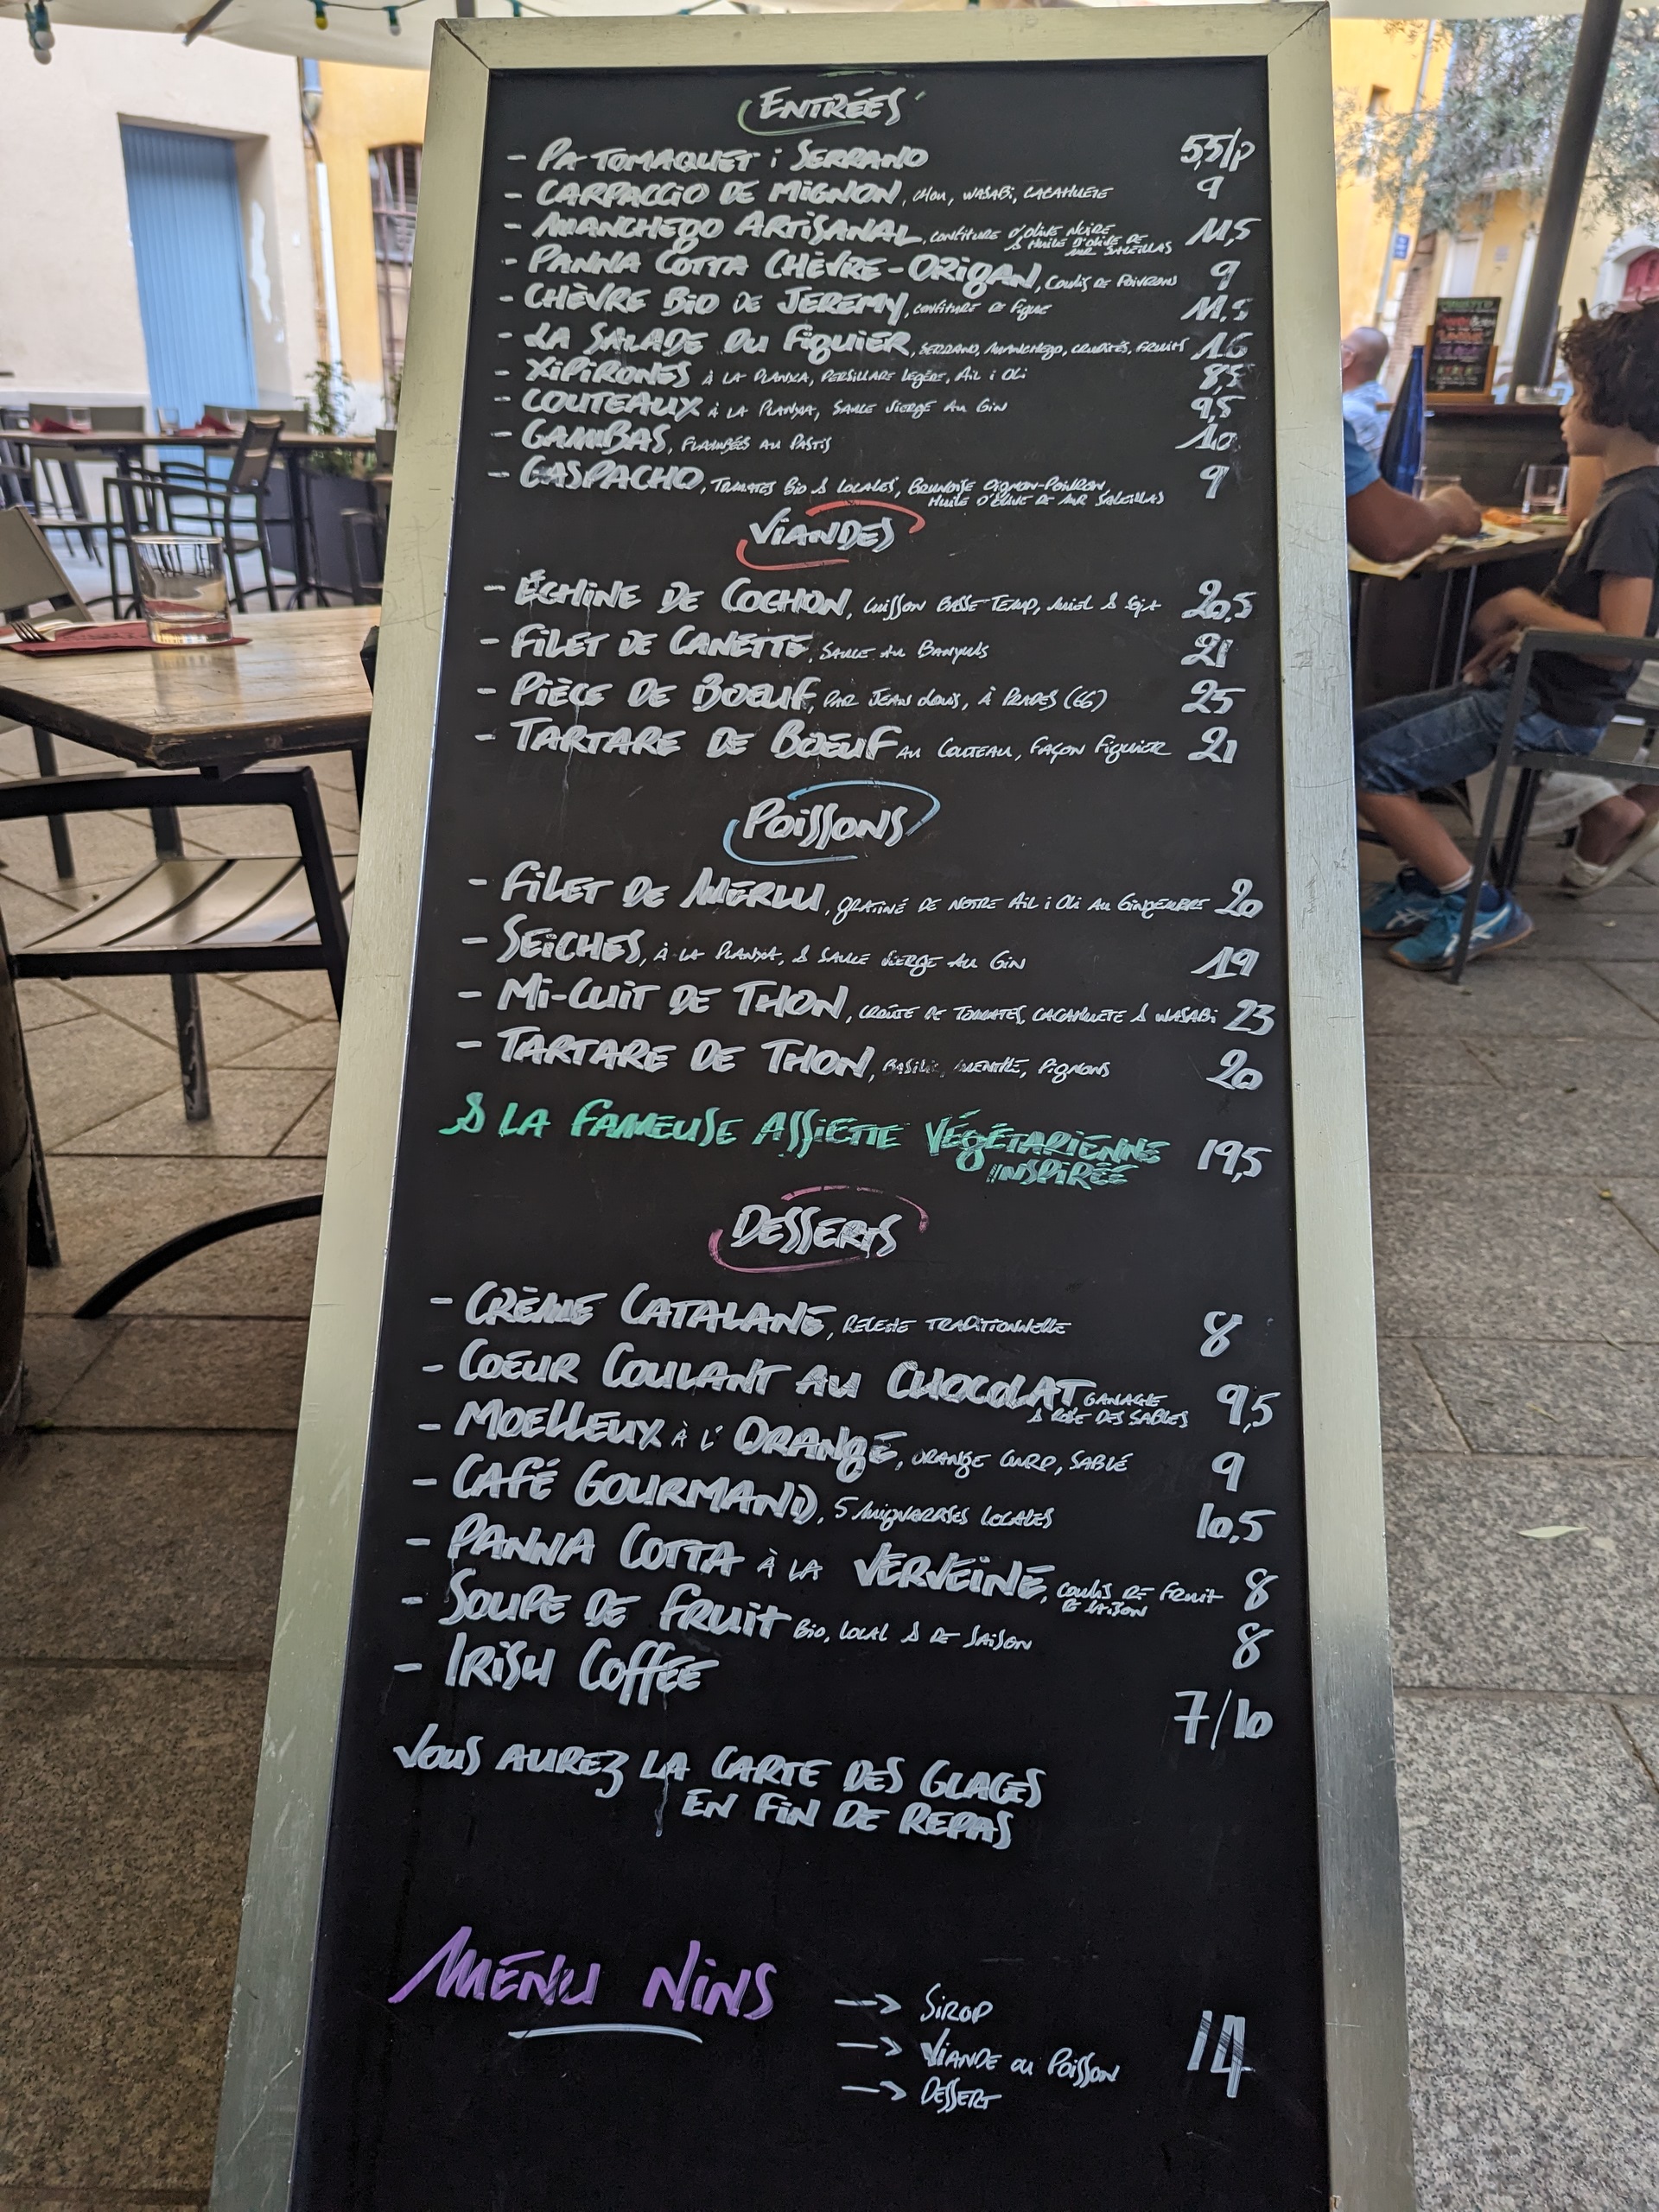 Entrées
- Pa tomaquet i Serrano 5,5/p
- Carpaccio de Mignon, chou, wasabi, cacahuete 9
- Manchego Artisanal, confiture d'olive noire 11,5
& huile d'olive de
Mr Saleillas
- Panna Cotta Chèvre-Origan, coulis de poivrons 9
- Chèvre Bio de Jeremy, confiture de figue 11,5
- La Salade du Figuier, serrano, manchego, crudités, fruits 16
- Xipirones à la planxa, persillade légère, ail i oli 8,5
- Couteaux à la planxa, sauce vierge au gin 9,5
- Gambas, flambées au pastis 10
- Gaspacho, tomates bio & locales, brunoise oignon-poivron, 9
huile d'olive de Mr Saleillas
Viandes
- Échine de Cochon, cuisson basse temp, miel & soja 20,5
- Filet de Canette, sauce au Banyuls 21
- Pièce de Boeuf, par Jean Louis, à Prades (66) 25
- Tartare de Boeuf au couteau, façon Figuier 21
Poissons
- Filet de Merlu, gratiné de notre ail i oli au gingembre 20
- Seiches, à la planxa, & sauce vierge au gin 19
- Mi-cuit de Thon, croûte de tomates, cacahuete & wasabi 23
- Tartare de Thon, basilic, menthe, pignons 20
& La fameuse assiette végétarienne 19,5
inspirée
Desserts
- Crème Catalane, recette traditionnelle 8
- Coeur Coulant au Chocolat ganache 9,5
& rose des sables
- Moelleux à l'Orange, orange curd, sablé 9
- Café Gourmand, 5 mignardises locales 10,5
- Panna Cotta à la Verveine, coulis de fruit 8
de saison
- Soupe de fruit bio, local & de saison 8
- Irish Coffee 7/10
Vous aurez la carte des glaces
en fin de repas
Menu Nins → Sirop
→ Viande ou Poisson 14
→ Dessert